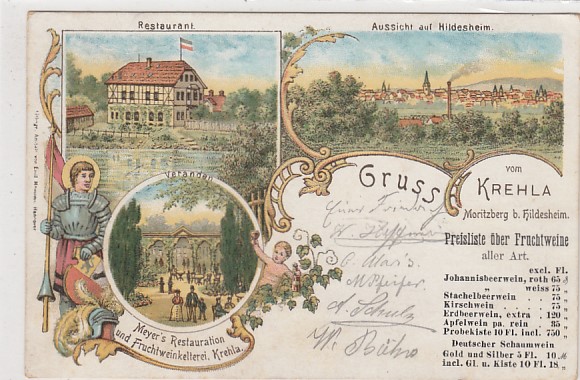 Restaurant.
Aussicht auf Hildesheim.
Veranden
Gruss vom
KREHLA
Moritzberg b. Hildesheim.
Preisliste über Fruchtweine
aller Art.
excl. Fl.
Johannisbeerwein, roth 65 ₰
„ weiss 75 „
Stachelbeerwein „ 75 „
Kirschwein „ 75 „
Erdbeerwein, extra „ 120 „
Apfelwein pa. rein 35 „
Probekiste 10 Fl. incl. 750 „
Deutscher Schaumwein
Gold und Silber 5 Fl. 10 ℳ
incl. Gl. u. Kiste 10 Fl. 18 „
Meyer's Restauration
und Fruchtweinkelterei, Krehla.
M Pfeifer
A. Schulz
W.